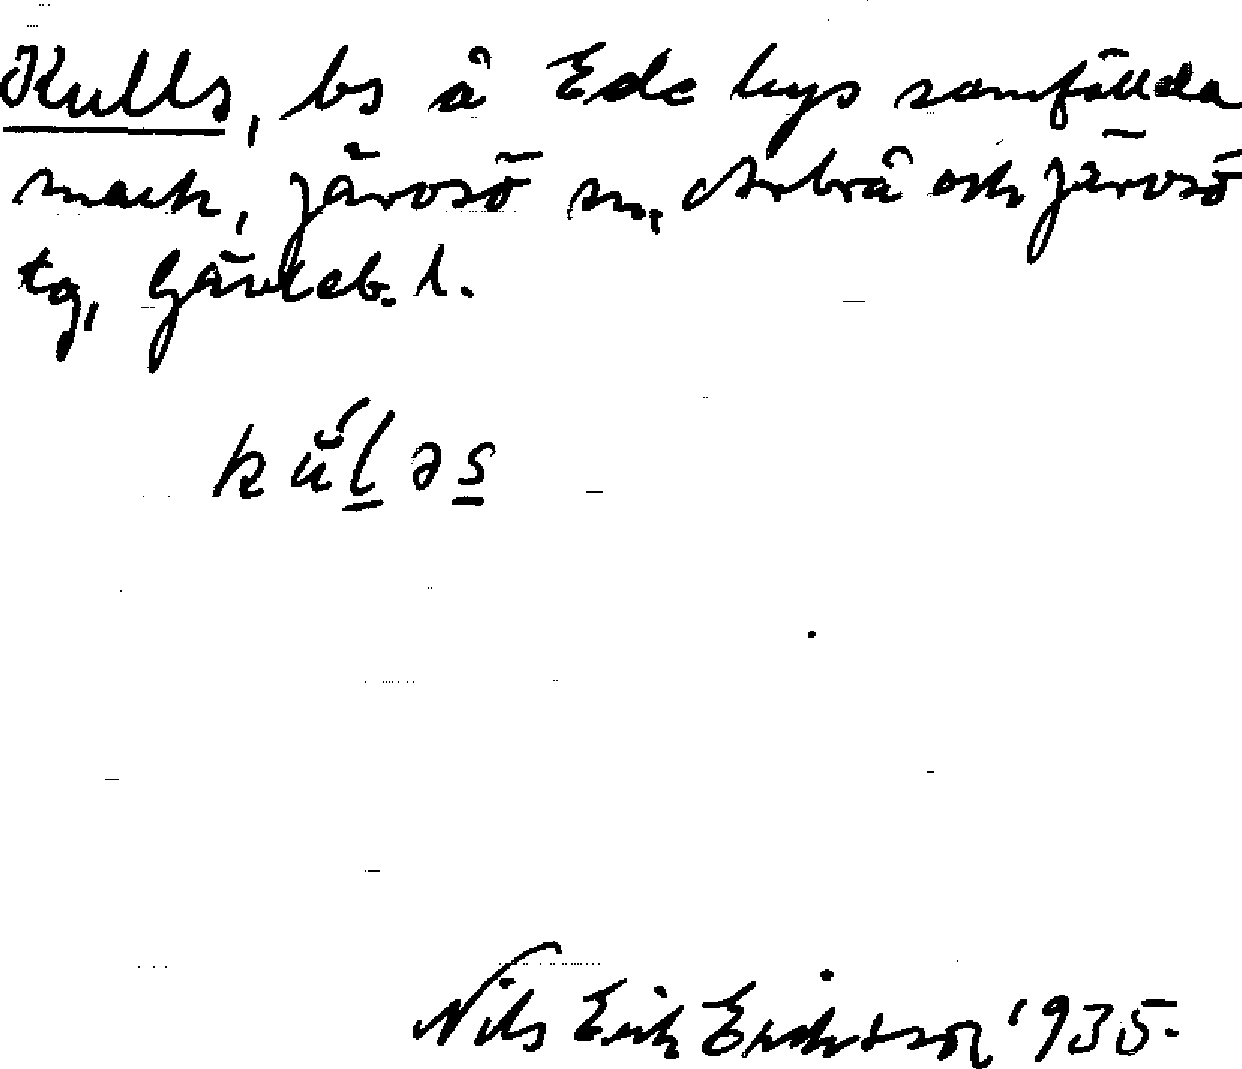 Kulls, bs å Ede bys samfällda
mark, Järvsö sn, Arbrå och Järvsö
tg, Gävleb. l.
Nils Erik Eriksson 1935.